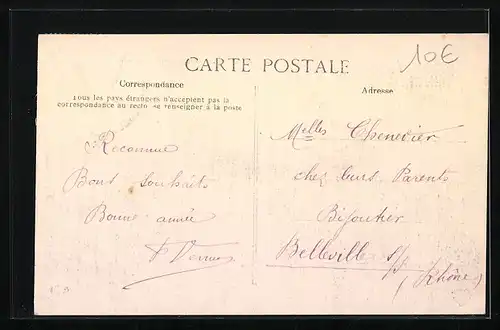 10€
CARTE POSTALE
Correspondance
Tous les pays étrangers n'acceptent pas la
correspondance au recto se renseigner à la poste
Adresse
Reconnue
Bons souhaits
Bonne année
Melles Chenevier
chez leurs Parents
Bijoutier
Belleville s/s
(Rhône)